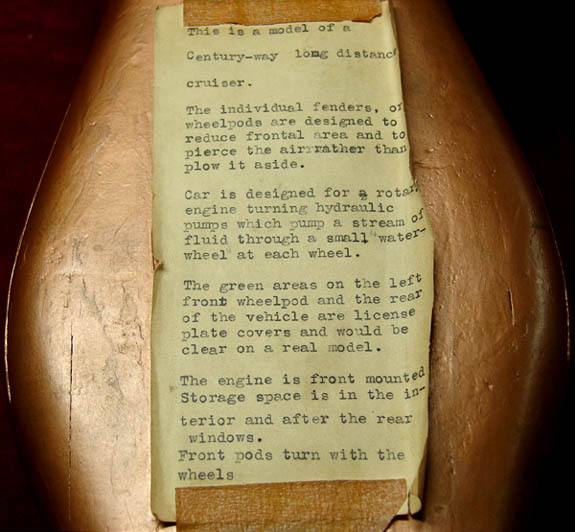 This is a model of a
Century-way long distance
cruiser.
The individual fenders, or
wheelpods are designed to
reduce frontal area and to
pierce the airrrather than
plow it aside.
Car is designed for a rotary
engine turning hydraulic
pumps which pump a stream of
fluid through a small "water-
wheel" at each wheel.
The green areas on the left
front wheelpod and the rear
of the vehicle are license
plate covers and would be
clear on a real model.
The engine is front mounted
Storage space is in the in-
terior and after the rear
windows.
Front pods turn with the
wheels